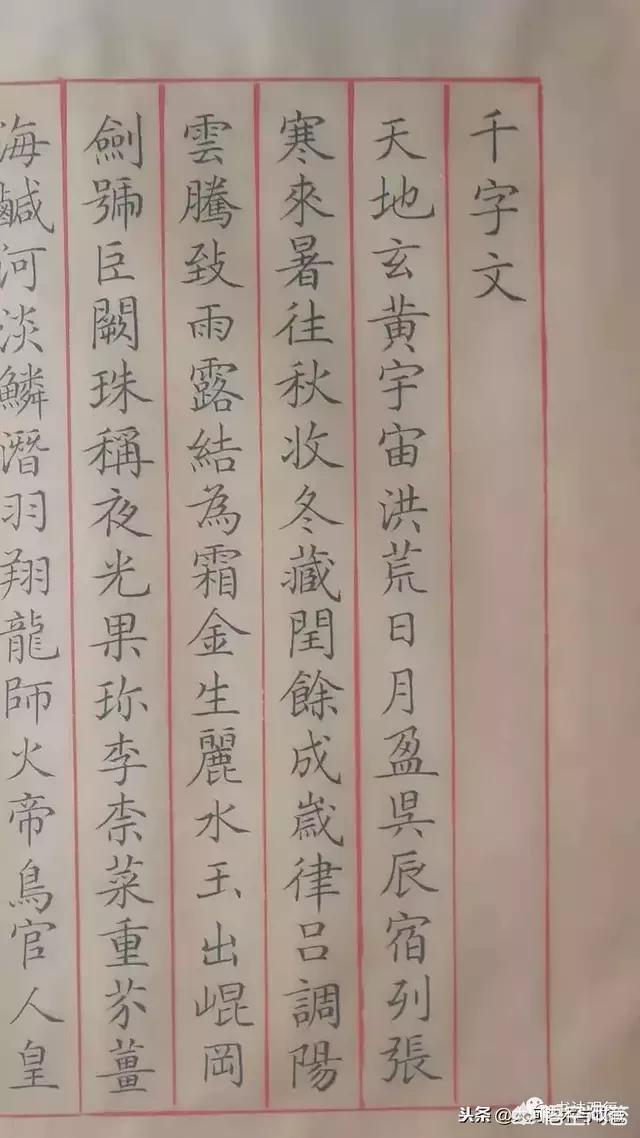 千字文
天地玄黃宇宙洪荒日月盈昃辰宿列張
寒來暑往秋收冬藏閏餘成歲律呂調陽
雲騰致雨露結為霜金生麗水玉出崐岡
劍號巨闕珠稱夜光果珎李柰菜重芥薑
海鹹河淡鱗潛羽翔龍師火帝鳥官人皇
头条